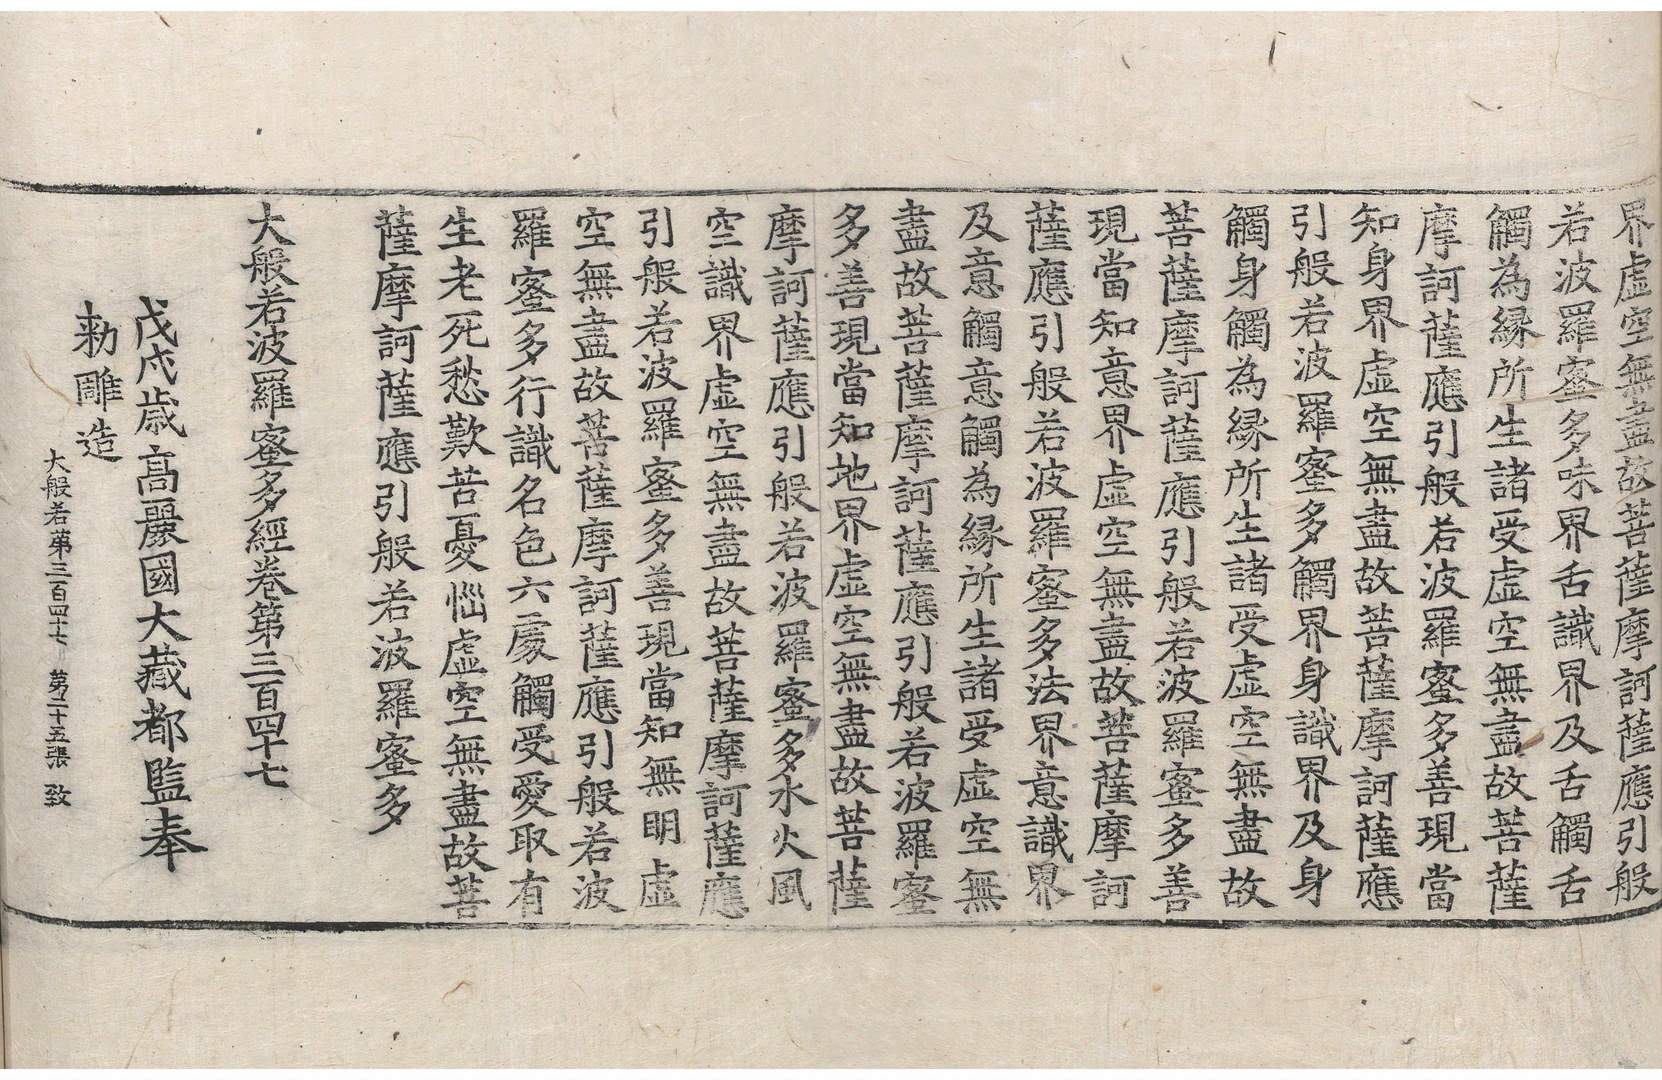 界虛空無盡故菩薩摩訶薩應引般
若波羅蜜多味界舌識界及舌觸舌
觸為緣所生諸受虛空無盡故菩薩
摩訶薩應引般若波羅蜜多善現當
知身界虛空無盡故菩薩摩訶薩應
引般若波羅蜜多觸界身識界及身
觸身觸為緣所生諸受虛空無盡故
菩薩摩訶薩應引般若波羅蜜多善
現當知意界虛空無盡故菩薩摩訶
薩應引般若波羅蜜多法界意識界
及意觸意觸為緣所生諸受虛空無
盡故菩薩摩訶薩應引般若波羅蜜
多善現當知地界虛空無盡故菩薩
摩訶薩應引般若波羅蜜多水火風
空識界虛空無盡故菩薩摩訶薩應
引般若波羅蜜多善現當知無明虛
空無盡故菩薩摩訶薩應引般若波
羅蜜多行識名色六處觸受愛取有
生老死愁歎苦憂惱虛空無盡故菩
薩摩訶薩應引般若波羅蜜多
大般若波羅蜜多經卷第三百四十七
戊戌歲高麗國大藏都監奉
勅雕造
大般若第三百四十七 第二十五張 致